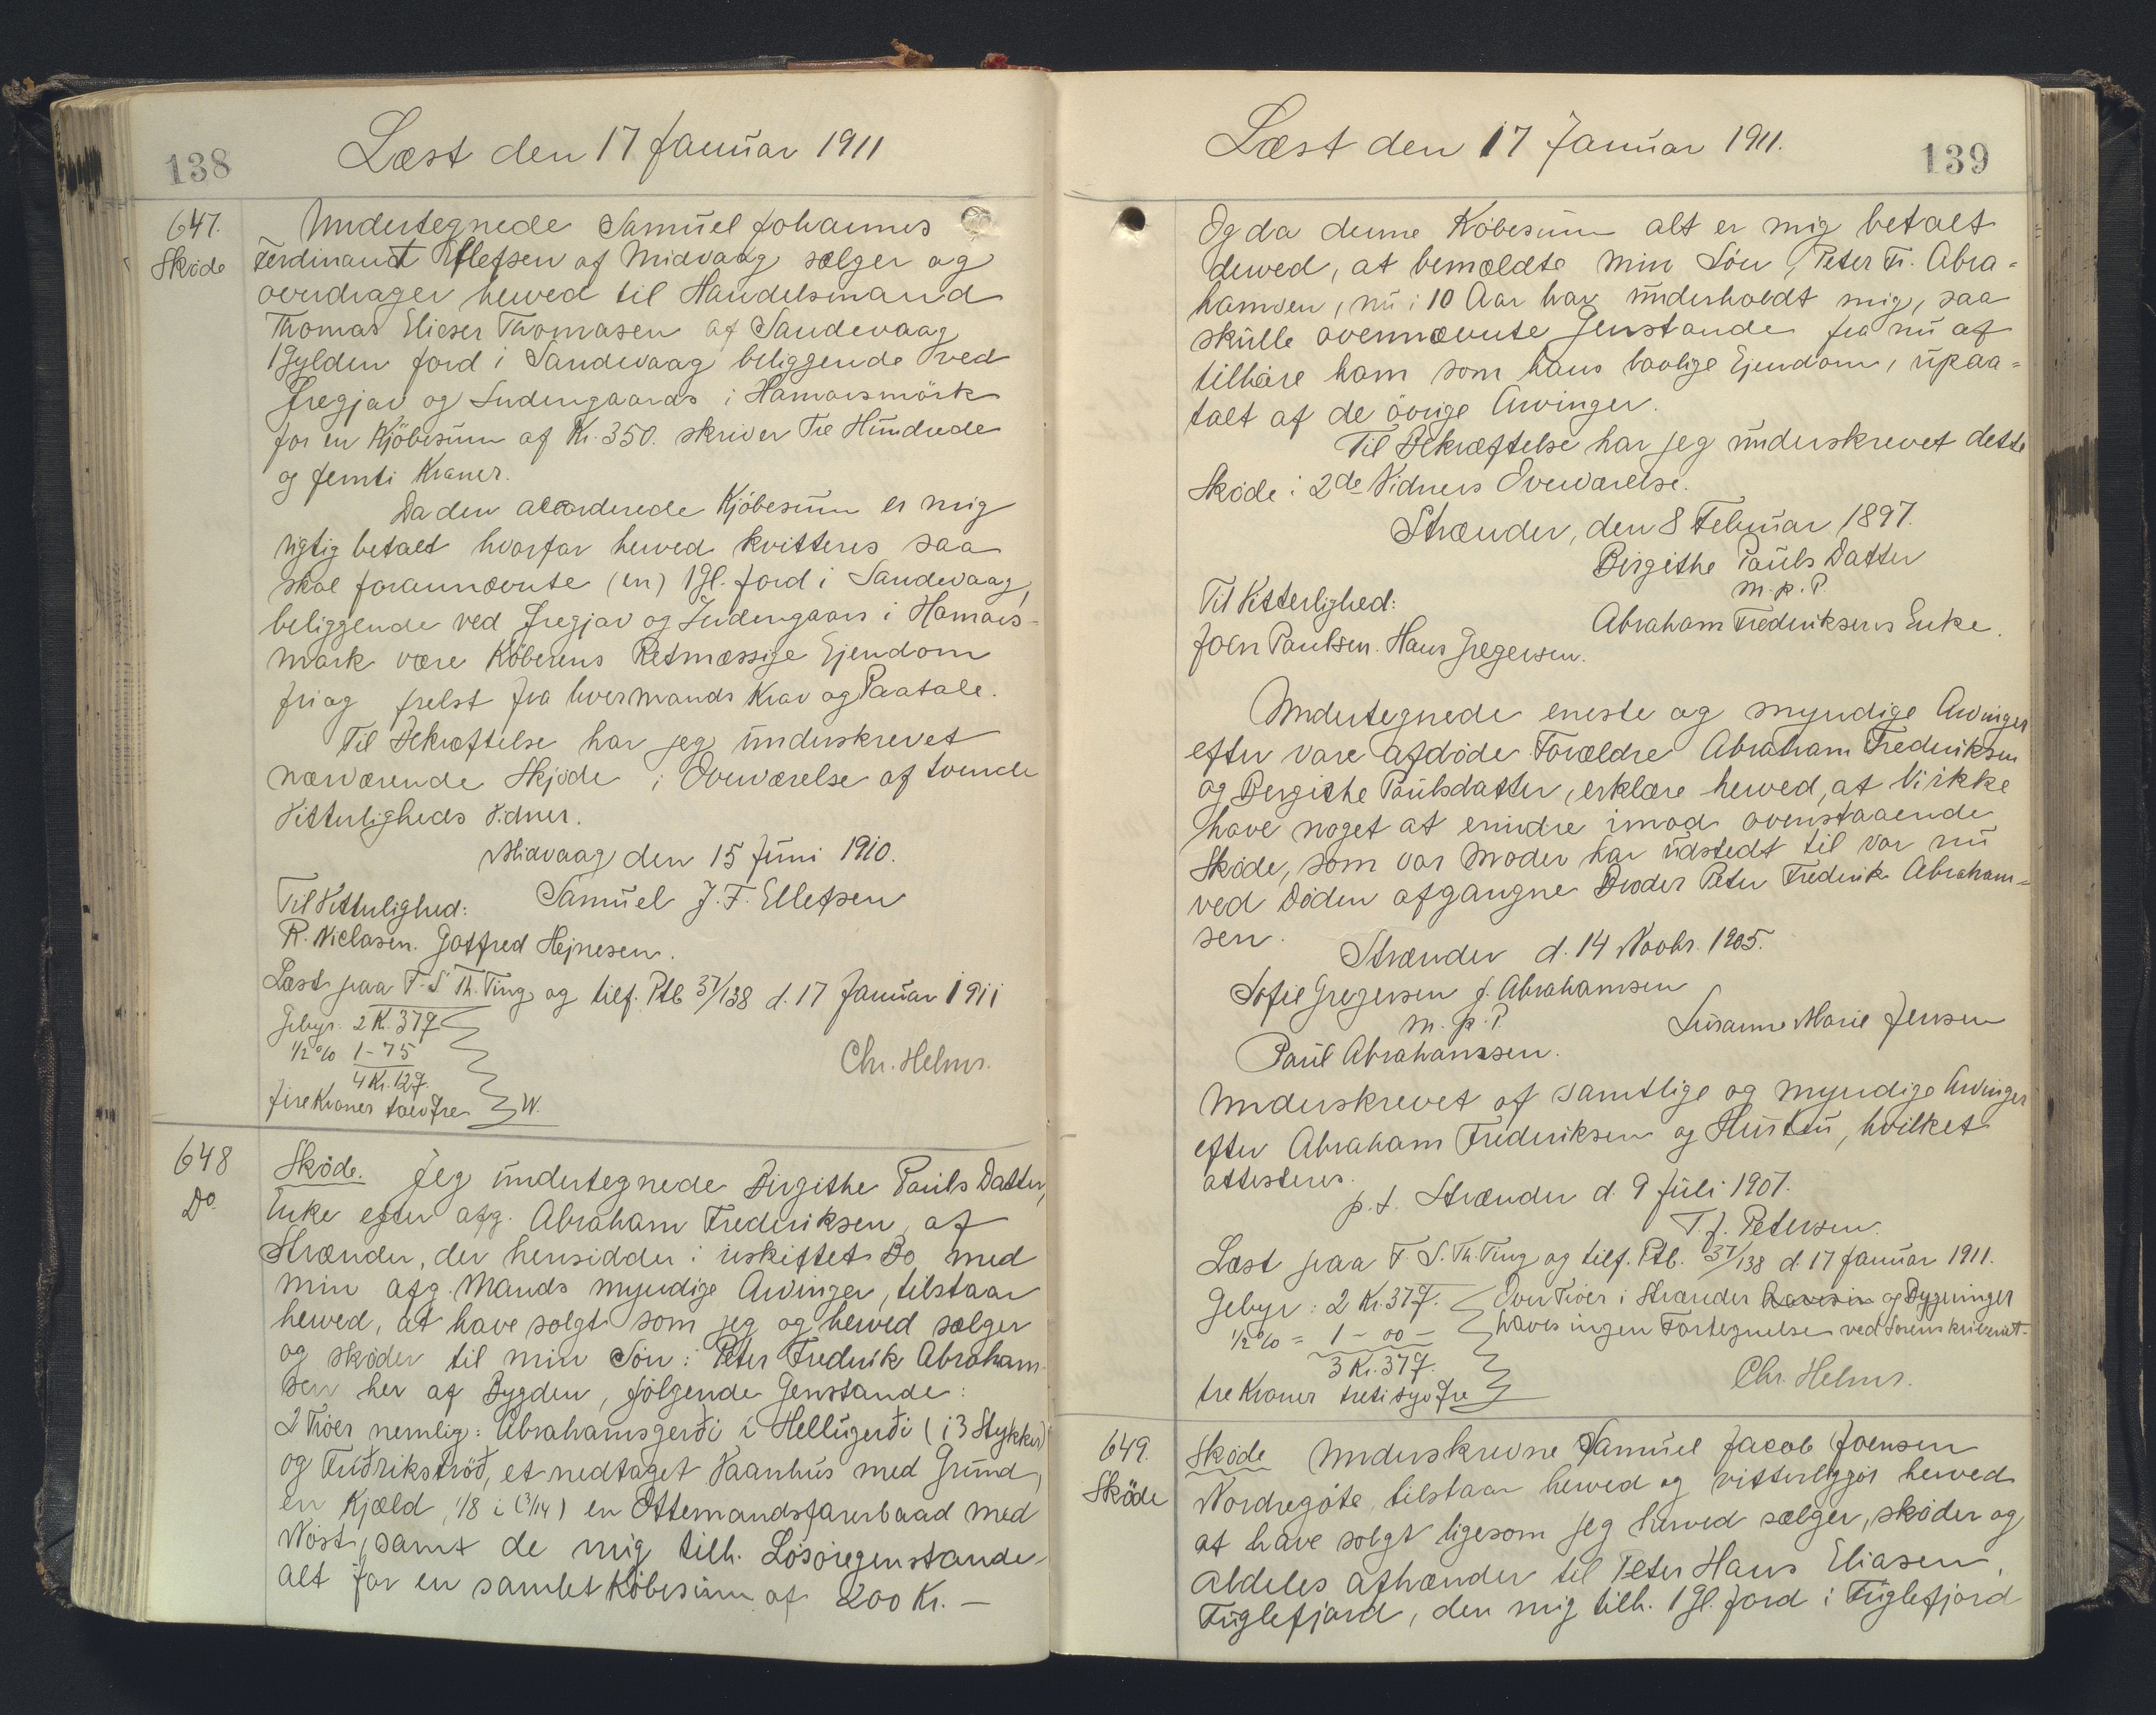 138
Læst den 17 Januar 1911
647.
Skøde
Undertegnede Samuel Johannes
Ferdinand Ellefsen af Midvaag sælger og
overdrager herved til Handelsmand
Thomas Elieser Thomasen af Sandevaag
1 Gylden Jord i Sandevaag beliggende ved
Jregjav og Indengaards i Hamarsmörk
for en Kjöbesum af Kr. 350. skriver Tre Hundrede
og femti Kroner.
Da den accorderede Kjöbesum er mig
rigtig betalt hvorfor herved kvitteres saa
skal forannævnte (en) 1 Gl. Jord i Sandevaag,
beliggende ved Jregjav og Indengaars i Hamars-
mark være Köberens Retmæssige Ejendom
fri og frelst fra hvermands Krav og Paatale.
Til Bekræftelse har jeg underskrevet
nærværende Skjöde i Overværelse af tvende
Vitterligheds Vidner.
Midvaag den 15 Juni 1910.
Til Vitterlighed: Samuel J. F. Ellefsen
R. Niclasen. Gotfred Hejnesen.
Læst paa F. S Th. Ting og tilf. Ptb 37/138 d. 17 Januar 1911
Gebyr. 2 K. 37 Ø
1/2 % 1 - 75
4 Kr. 12 Ø. Chr. Helms.
fire Kroner tolv Øre W.
648
Do
Sköde. Jeg undertegnede Birgithe Pauls Datter,
Enke efter afg. Abraham Frederiksen, af
Strænder, der hensidder i uskiftet Bo med
min afg. Mands myndige Arvinger, tilstaar
herved, at have solgt som jeg og herved sælger
og sköder til min Sön: Peter Frederik Abraham-
sen her af Bygden, fölgende Genstande:
2 Tröer nemlig: Abrahamsgerði i Hellugerði (i 3 Stykker)
og Fuðrikströð, et nedtaget Vaanhus med Grund,
en Kjæld, 1/8 i (3/14) en Ottemandsfarerbaad med
Nöst, samt de mig tilh. Lösöregenstande
alt for en samlet Köbesum af 200 Kr. —
Læst den 17 Januar 1911.
139
Og da denne Köbesum alt er mig betalt
derved, at bemældte min Sön, Peter Fr. Abra=
hamsen, nu i 10 Aar har underholdt mig, saa
skulle ovennævnte Genstande fra nu af
tilhöre ham som hans lovlige Ejendom, upaa=
talt af de övrige Arvinger.
Til Bekræftelse har jeg underskrevet dette
Sköde i 2de Vidners Overværelse.
Strænder, den 8 Februar 1897.
Birgithe Pauls Datter
m. p. P.
Til Vitterlighed: Abraham Frederiksens Enke.
Joen Paulsen. Hans Gregersen.
Undertegnede eneste og myndige Arvinger
efter vore afdöde Forældre Abraham Frederiksen
og Bergithe Paulsdatter, erklære herved, at Vi ikke
have noget at erindre imod ovenstaaende
Sköde, som vor Moder har udstedt til vor nu
ved Döden afgangne Broder Peter Frederik Abraham=
sen.
Strænder d. 14 Novbr. 1905.
Sofie Gregersen f. Abrahamsen
m. p. P. Susanne Marie Jensen
Paul Abrahamsen.
Underskrevet af samtlige og myndige Arvinger
efter Abraham Frederiksen og Hustru, hvilket
attesteres.
p. t. Strænder d. 9 Juli 1907.
T. J. Petersen.
Læst paa F. S. Th. Ting og tilf. Ptb. 37/138 d. 17 Januar 1911.
Gebyr: 2 Kr. 37 Ø. Over Tröer i Strænder og Bygninger
1/2 % = 1 - 00 - haves ingen Fortegnelse ved Sorenskriveriet.
3 Kr. 37 Ø.
tre Kroner treti syv Øre Chr. Helms.
649.
Sköde
Sköde Underskrevne Samuel Jacob Joensen
Nordregöte, tilstaar herved og vitterliggör herved
at have solgt ligesom jeg herved sælger, sköder og
aldeles afhænder til Peter Hans Eliasen,
Fuglefjord, den mig tilh. 1 Gl. Jord i Fuglefjord